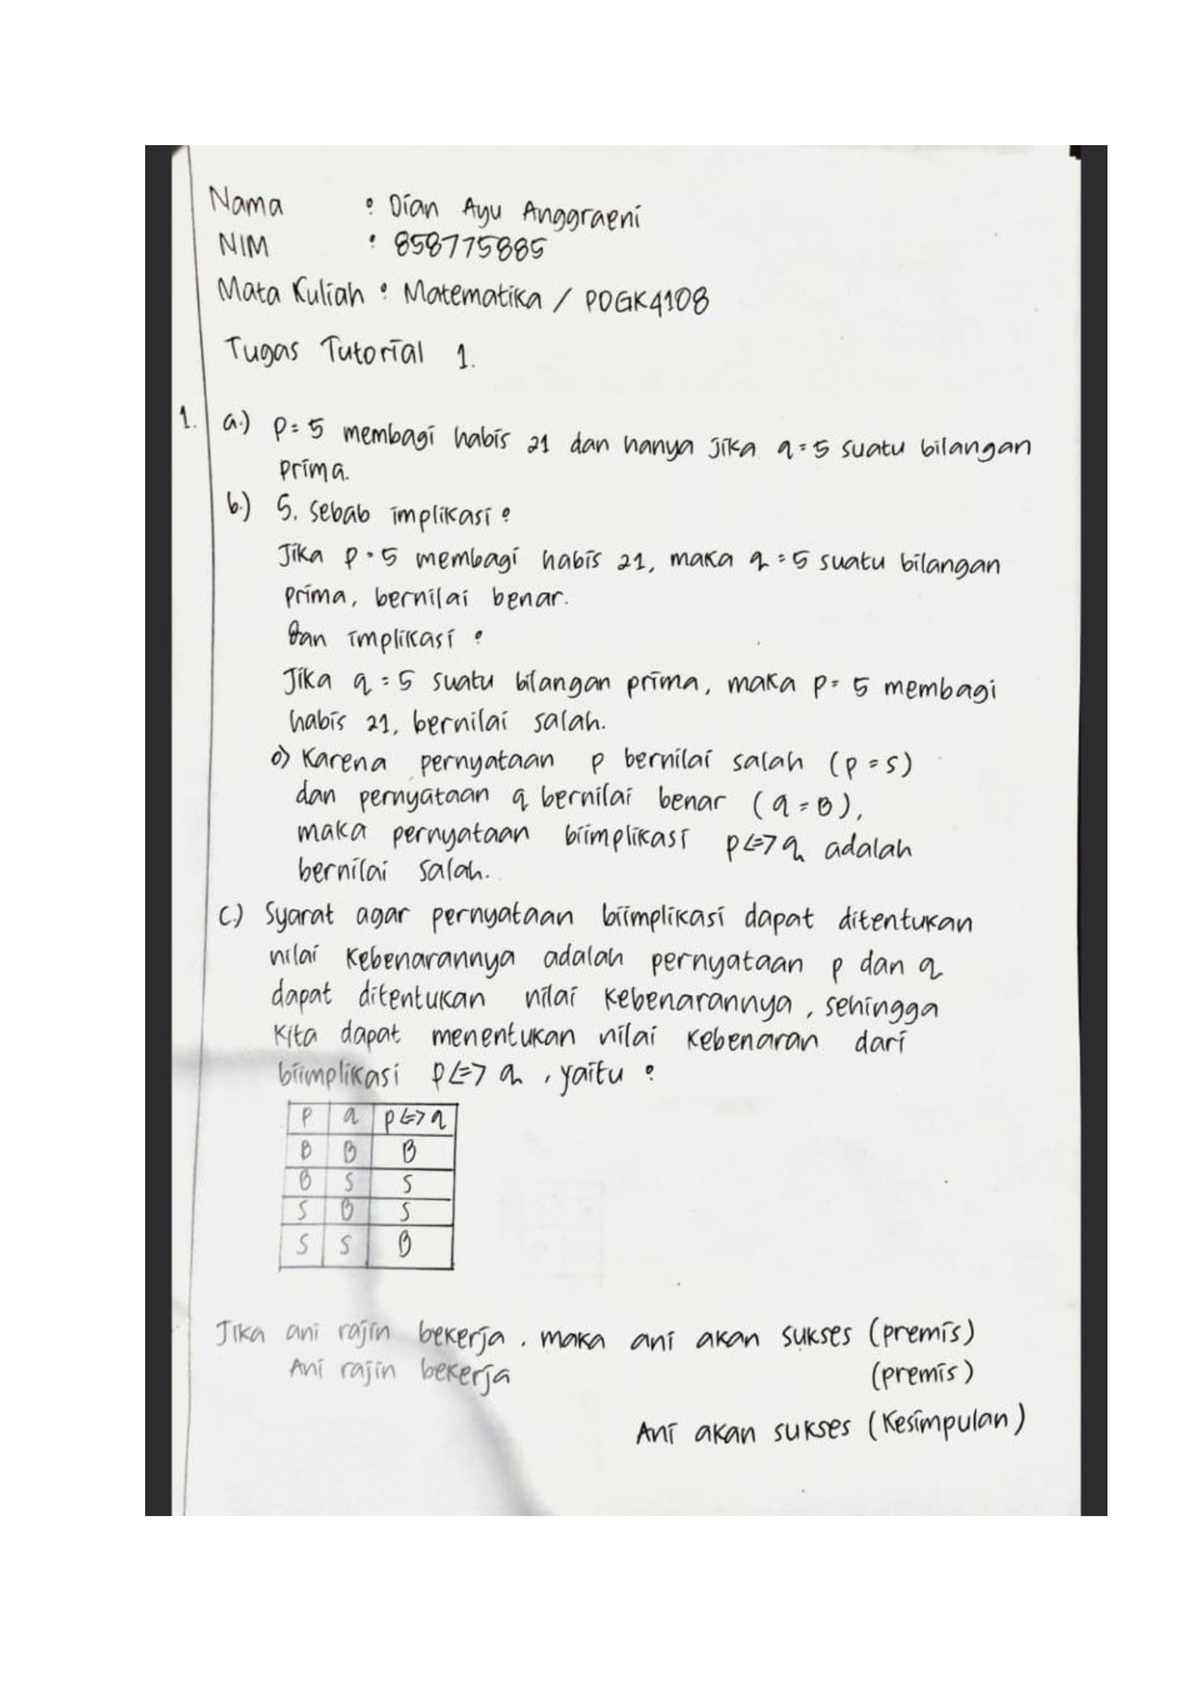 Nama : Dian Ayu Anggraeni
NIM : 858775885
Mata Kuliah : Matematika / PDGK4108
Tugas Tutorial 1.
1. a.) p = 5 membagi habis 21 dan hanya jika q = 5 suatu bilangan
prima.
b.) S. Sebab implikasi :
Jika p = 5 membagi habis 21, maka q = 5 suatu bilangan
prima, bernilai benar.
Dan implikasi :
Jika q = 5 suatu bilangan prima, maka p = 5 membagi
habis 21, bernilai salah.
o) Karena pernyataan p bernilai salah (p = S)
dan pernyataan q bernilai benar (q = B),
maka pernyataan biimplikasi p <=> q adalah
bernilai salah.
c.) Syarat agar pernyataan biimplikasi dapat ditentukan
nilai kebenarannya adalah pernyataan p dan q
dapat ditentukan nilai kebenarannya, sehingga
kita dapat menentukan nilai kebenaran dari
biimplikasi p <=> q, yaitu :
p q p <=> q
B B B
B S S
S B S
S S B
Jika ani rajin bekerja, maka ani akan sukses (premis)
Ani rajin bekerja (premis)
Ani akan sukses (Kesimpulan)